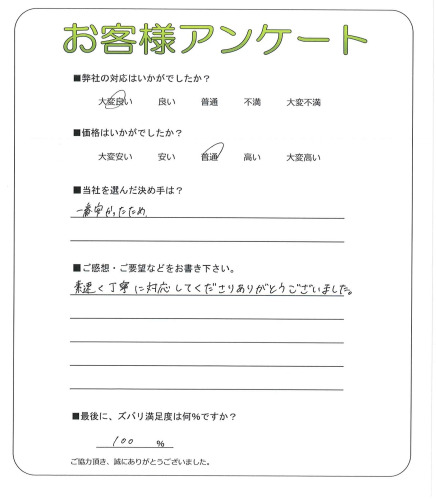 お客様アンケート
■弊社の対応はいかがでしたか？
大変良い 良い 普通 不満 大変不満
■価格はいかがでしたか？
大変安い 安い 普通 高い 大変高い
■当社を選んだ決め手は？
一番早かったため、
■ご感想・ご要望などをお書き下さい。
素速く丁寧に対応してくださりありがとうございました。
■最後に、ズバリ満足度は何%ですか？
100 %
ご協力頂き、誠にありがとうございました。